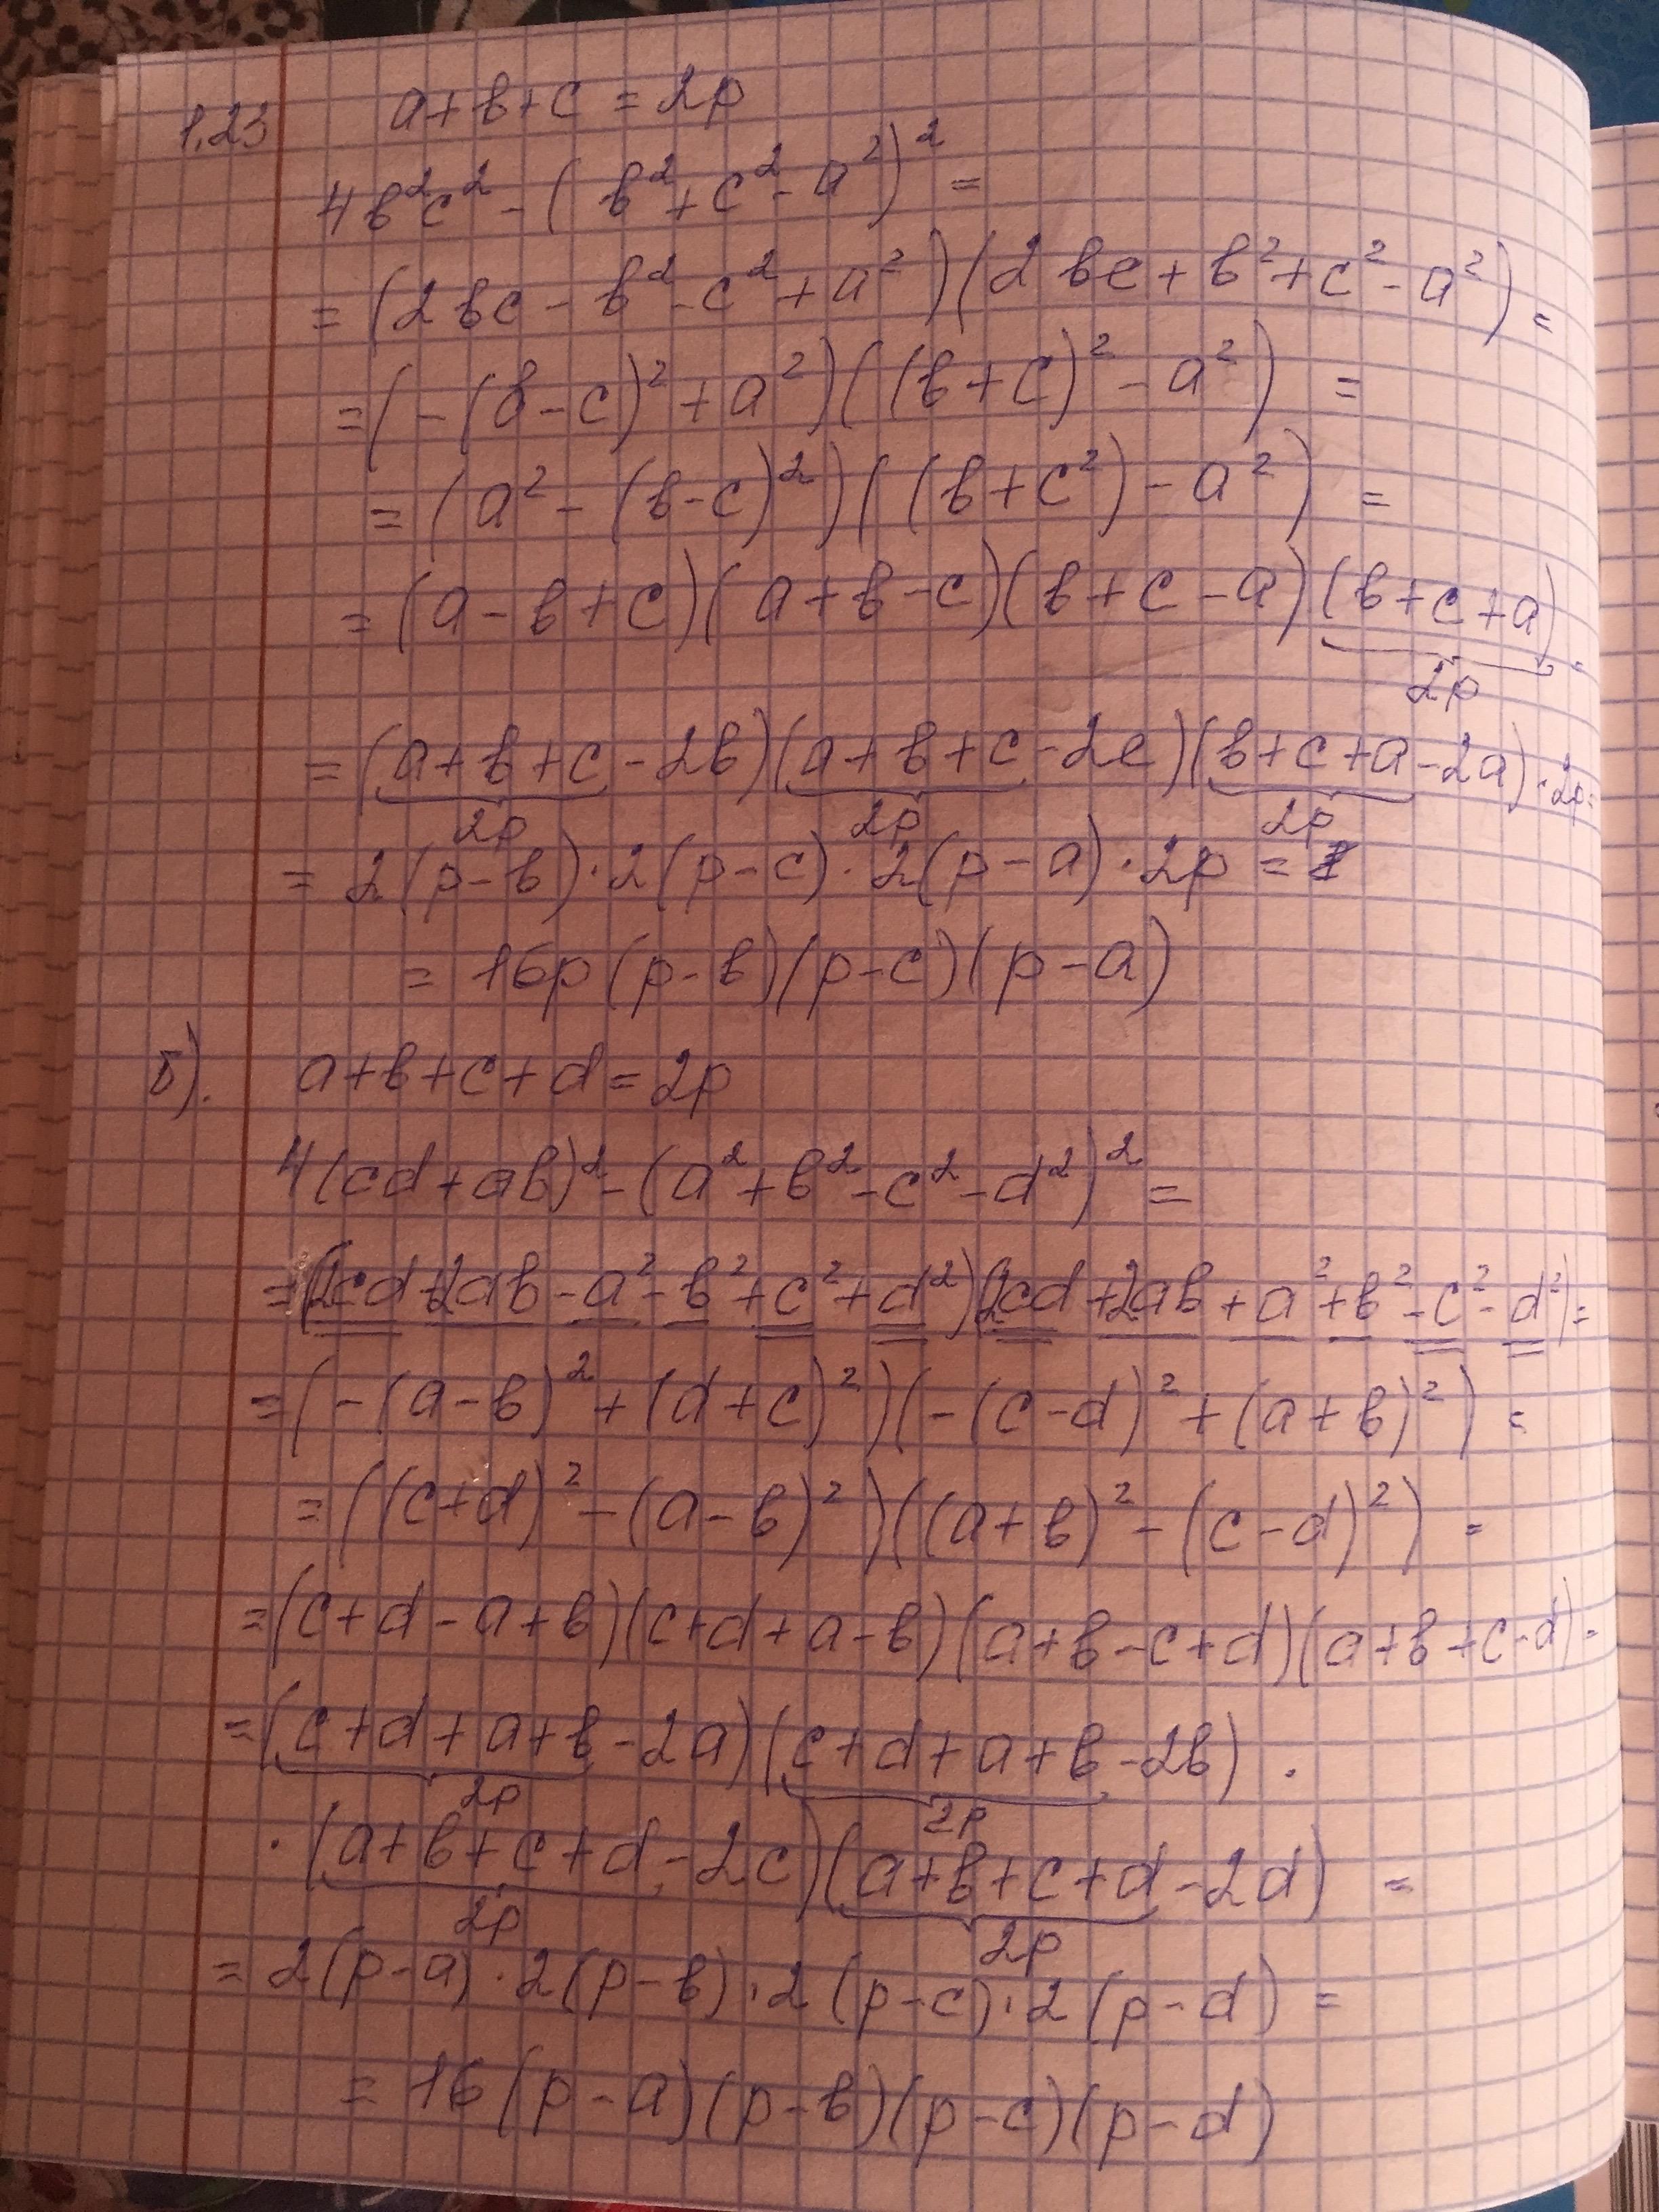 1.23 a+b+c=2p
4b²c²-(b²+c²-a²)²=
=(2bc-b²-c²+a²)(2bc+b²+c²-a²)=
=(-(b-c)²+a²)((b+c)²-a²)=
=(a²-(b-c)²)((b+c²)-a²)=
=(a-b+c)(a+b-c)(b+c-a)(b+c+a)=
2p
=(a+b+c-2b)(a+b+c-2c)(b+c+a-2a)·2p=
2p 2p 2p
=2(p-b)·2(p-c)·2(p-a)·2p=
=16p(p-b)(p-c)(p-a)
б). a+b+c+d=2p
4(cd+ab)²-(a²+b²-c²-d²)²=
=(2cd+2ab-a²-b²+c²+d²)(2cd+2ab+a²+b²-c²-d²)=
=(-(a-b)²+(d+c)²)(-(c-d)²+(a+b)²)=
=((c+d)²-(a-b)²)((a+b)²-(c-d)²)=
=(c+d-a+b)(c+d+a-b)(a+b-c+d)(a+b+c-d)=
=(c+d+a+b-2a)(c+d+a+b-2b)·
2p 2p
·(a+b+c+d-2c)(a+b+c+d-2d)=
2p 2p
=2(p-a)·2(p-b)·2(p-c)·2(p-d)=
=16(p-a)(p-b)(p-c)(p-d)